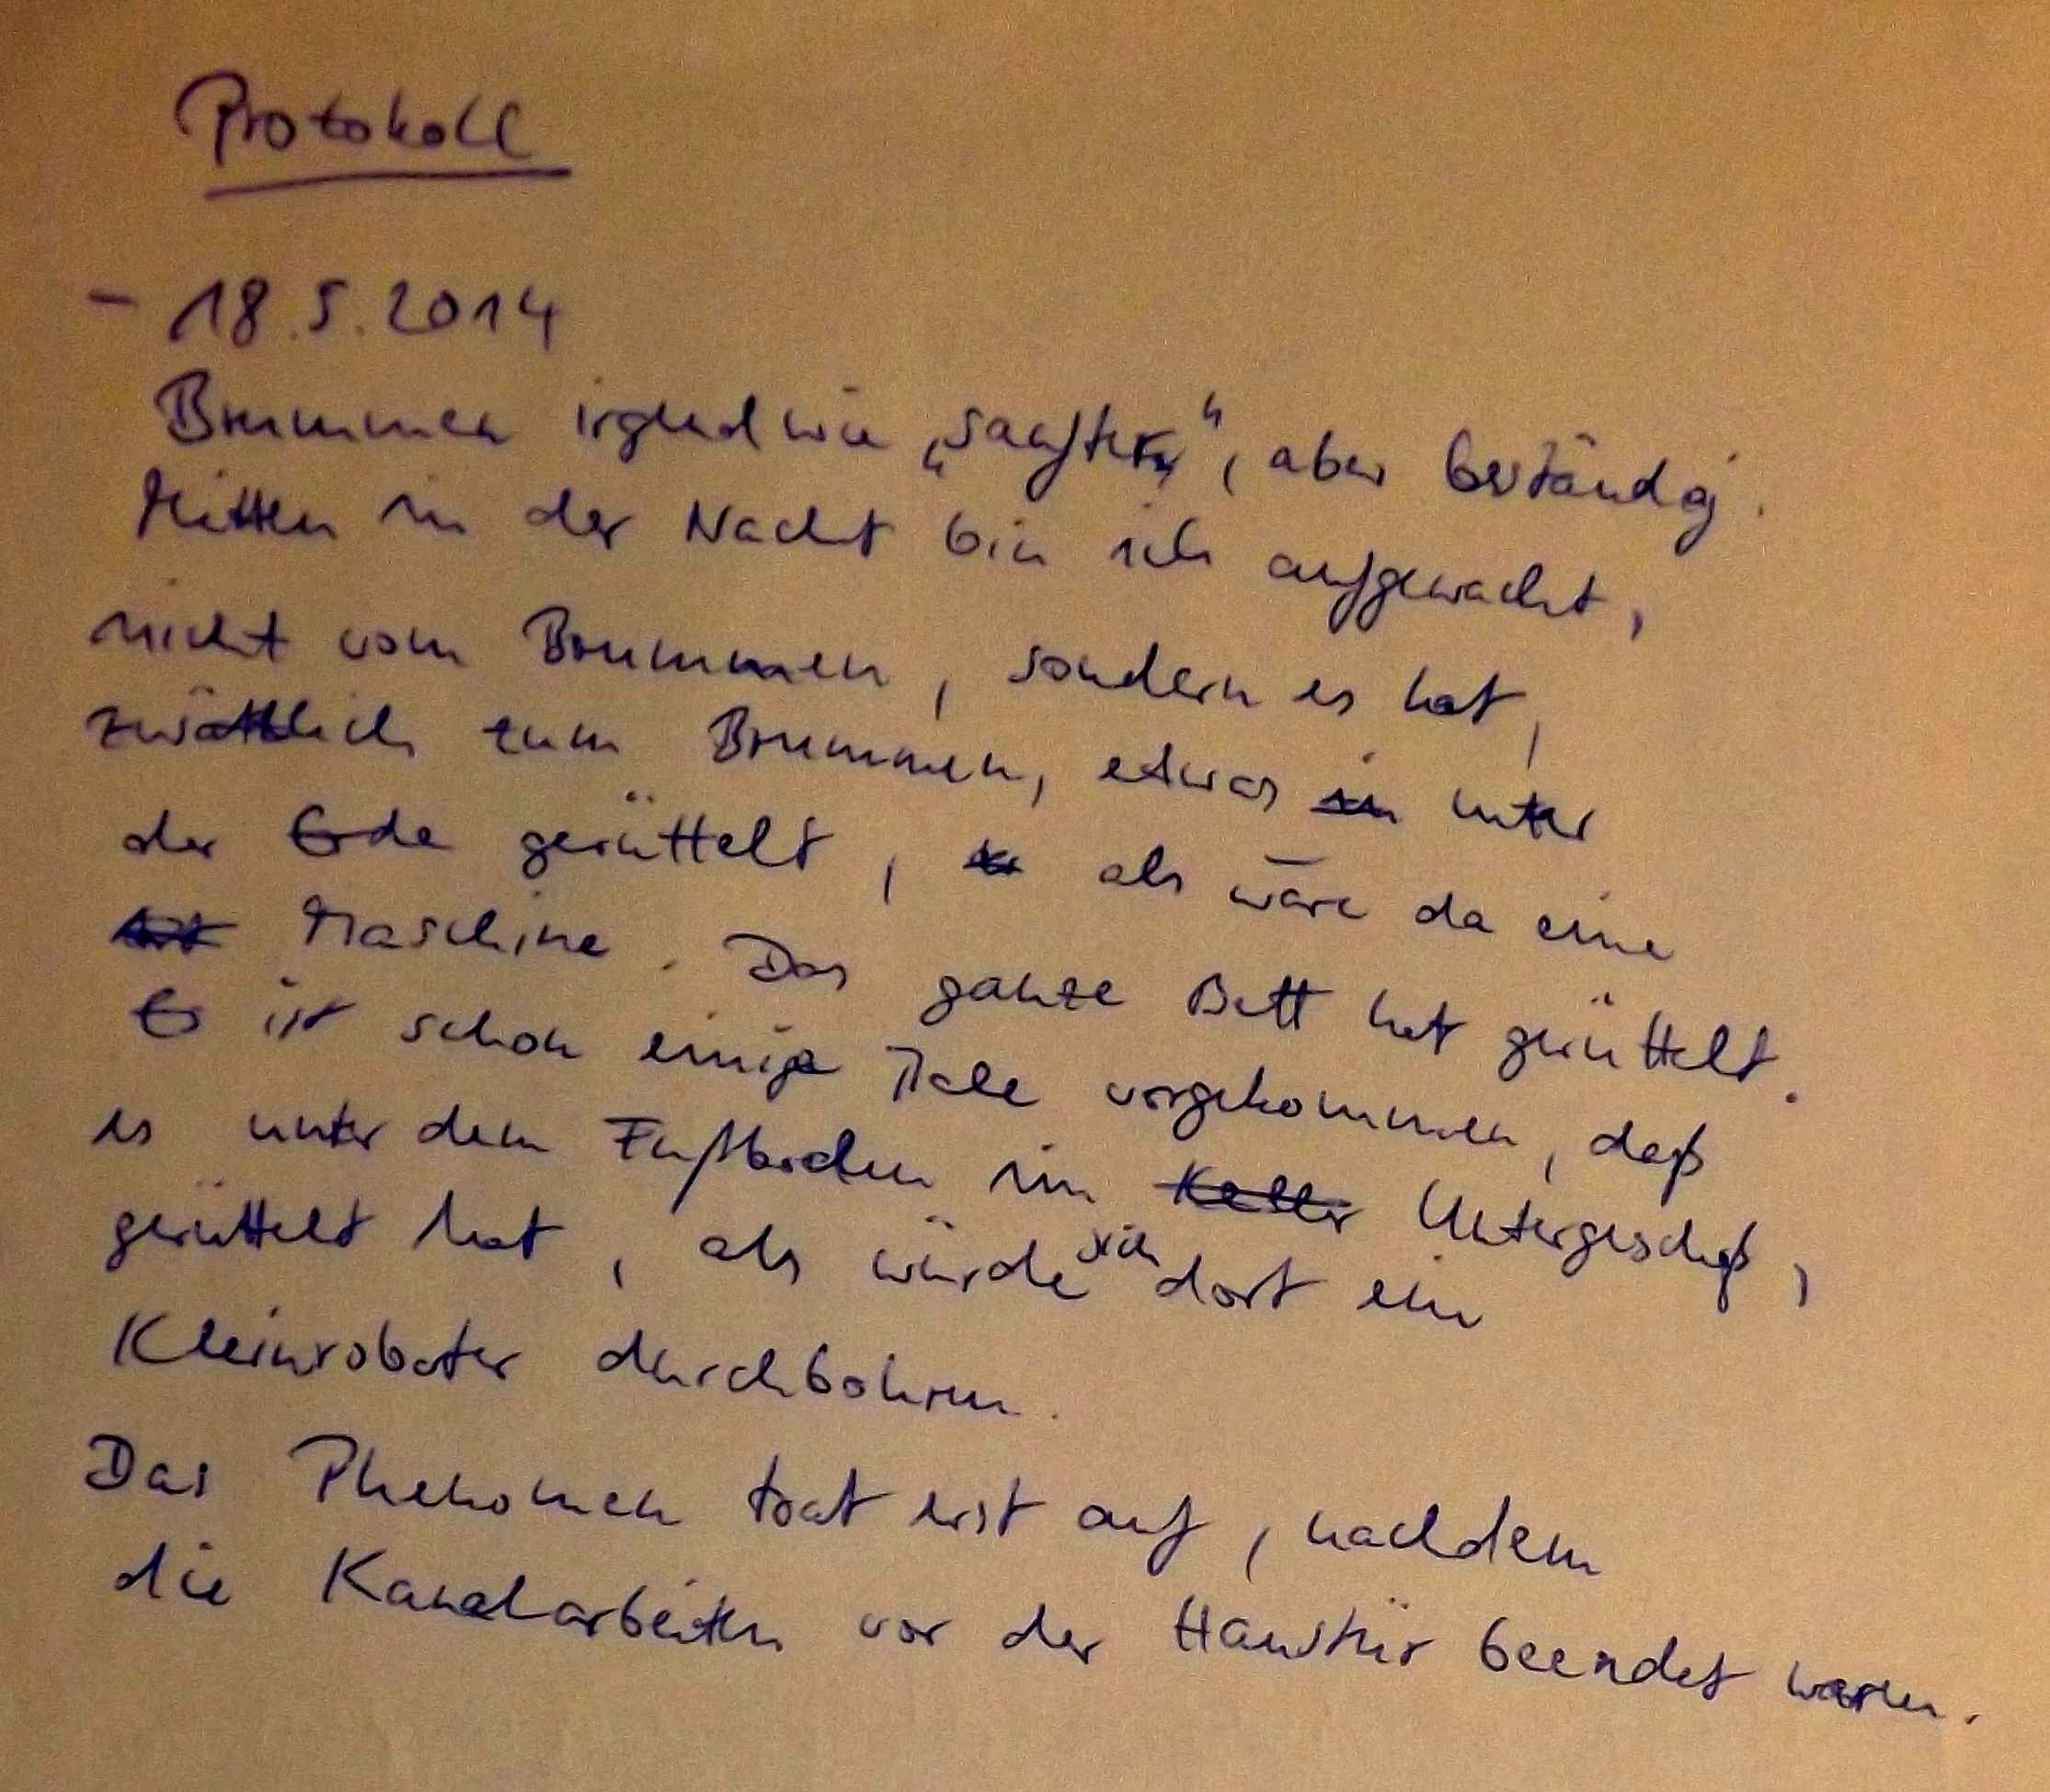 Protokoll
- 18.5.2014
Brummen irgendwie „sanfter", aber beständig.
Mitten in der Nacht bin ich aufgewacht,
nicht vom Brummen, sondern es hat,
zusätzlich zum Brummen, etwas in unter
der Erde gerüttelt, als wäre da eine
Maschine. Das ganze Bett hat gerüttelt.
Es ist schon einige Male vorgekommen, daß
es unter dem Fußboden im Keller Untergeschoß,
gerüttelt hat, als würde sich dort ein
Kleinroboter durchbohren.
Das Phenomen trat erst auf, nachdem
die Kanalarbeiten vor der Haustür beendet waren.